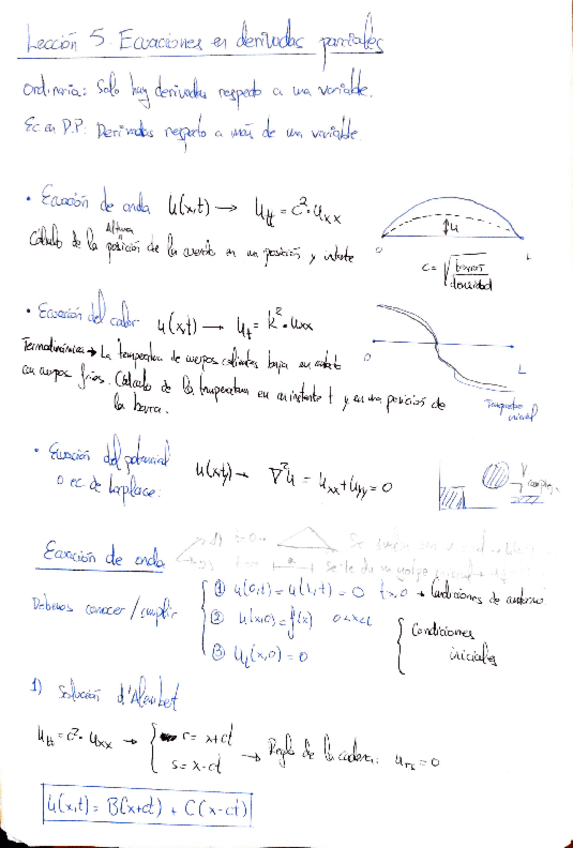 Lección 5. Ecuaciones en derivadas parciales
Ordinaria: Solo hay derivadas respecto a una variable.
Ec. en D.P: Derivadas respecto a más de un variable.
• Ecuación de onda u(x,t) → u_tt = c²·u_xx
Altura
Cálculo de la posición de la cuerda en un posición y instante
u
0 L
c = √(tensión/densidad)
• Ecuación del calor u(x,t) → u_t = k²·u_xx
Termodinámica → La temperatura de cuerpos calientes baja en contacto
con cuerpos fríos. Cálculo de la temperatura en un instante t y en una posición de
la barra.
0 L
Temperatura inicial
• Ecuación del potencial
o ec. de Laplace:
u(x,y) → ∇²u = u_xx + u_yy = 0
V
Ecuación de onda
Debemos conocer/cumplir
① u(0,t) = u(L,t) = 0 t>0 → Condiciones de contorno
② u(x,0) = f(x) 0<x<L
③ u_t(x,0) = 0
Condiciones
iniciales
1) Solución d'Alembert
u_tt = c²·u_xx → { r = x+ct
s = x-ct
→ Regla de la cadena: u_rs = 0
u(x,t) = B(x+ct) + C(x-ct)